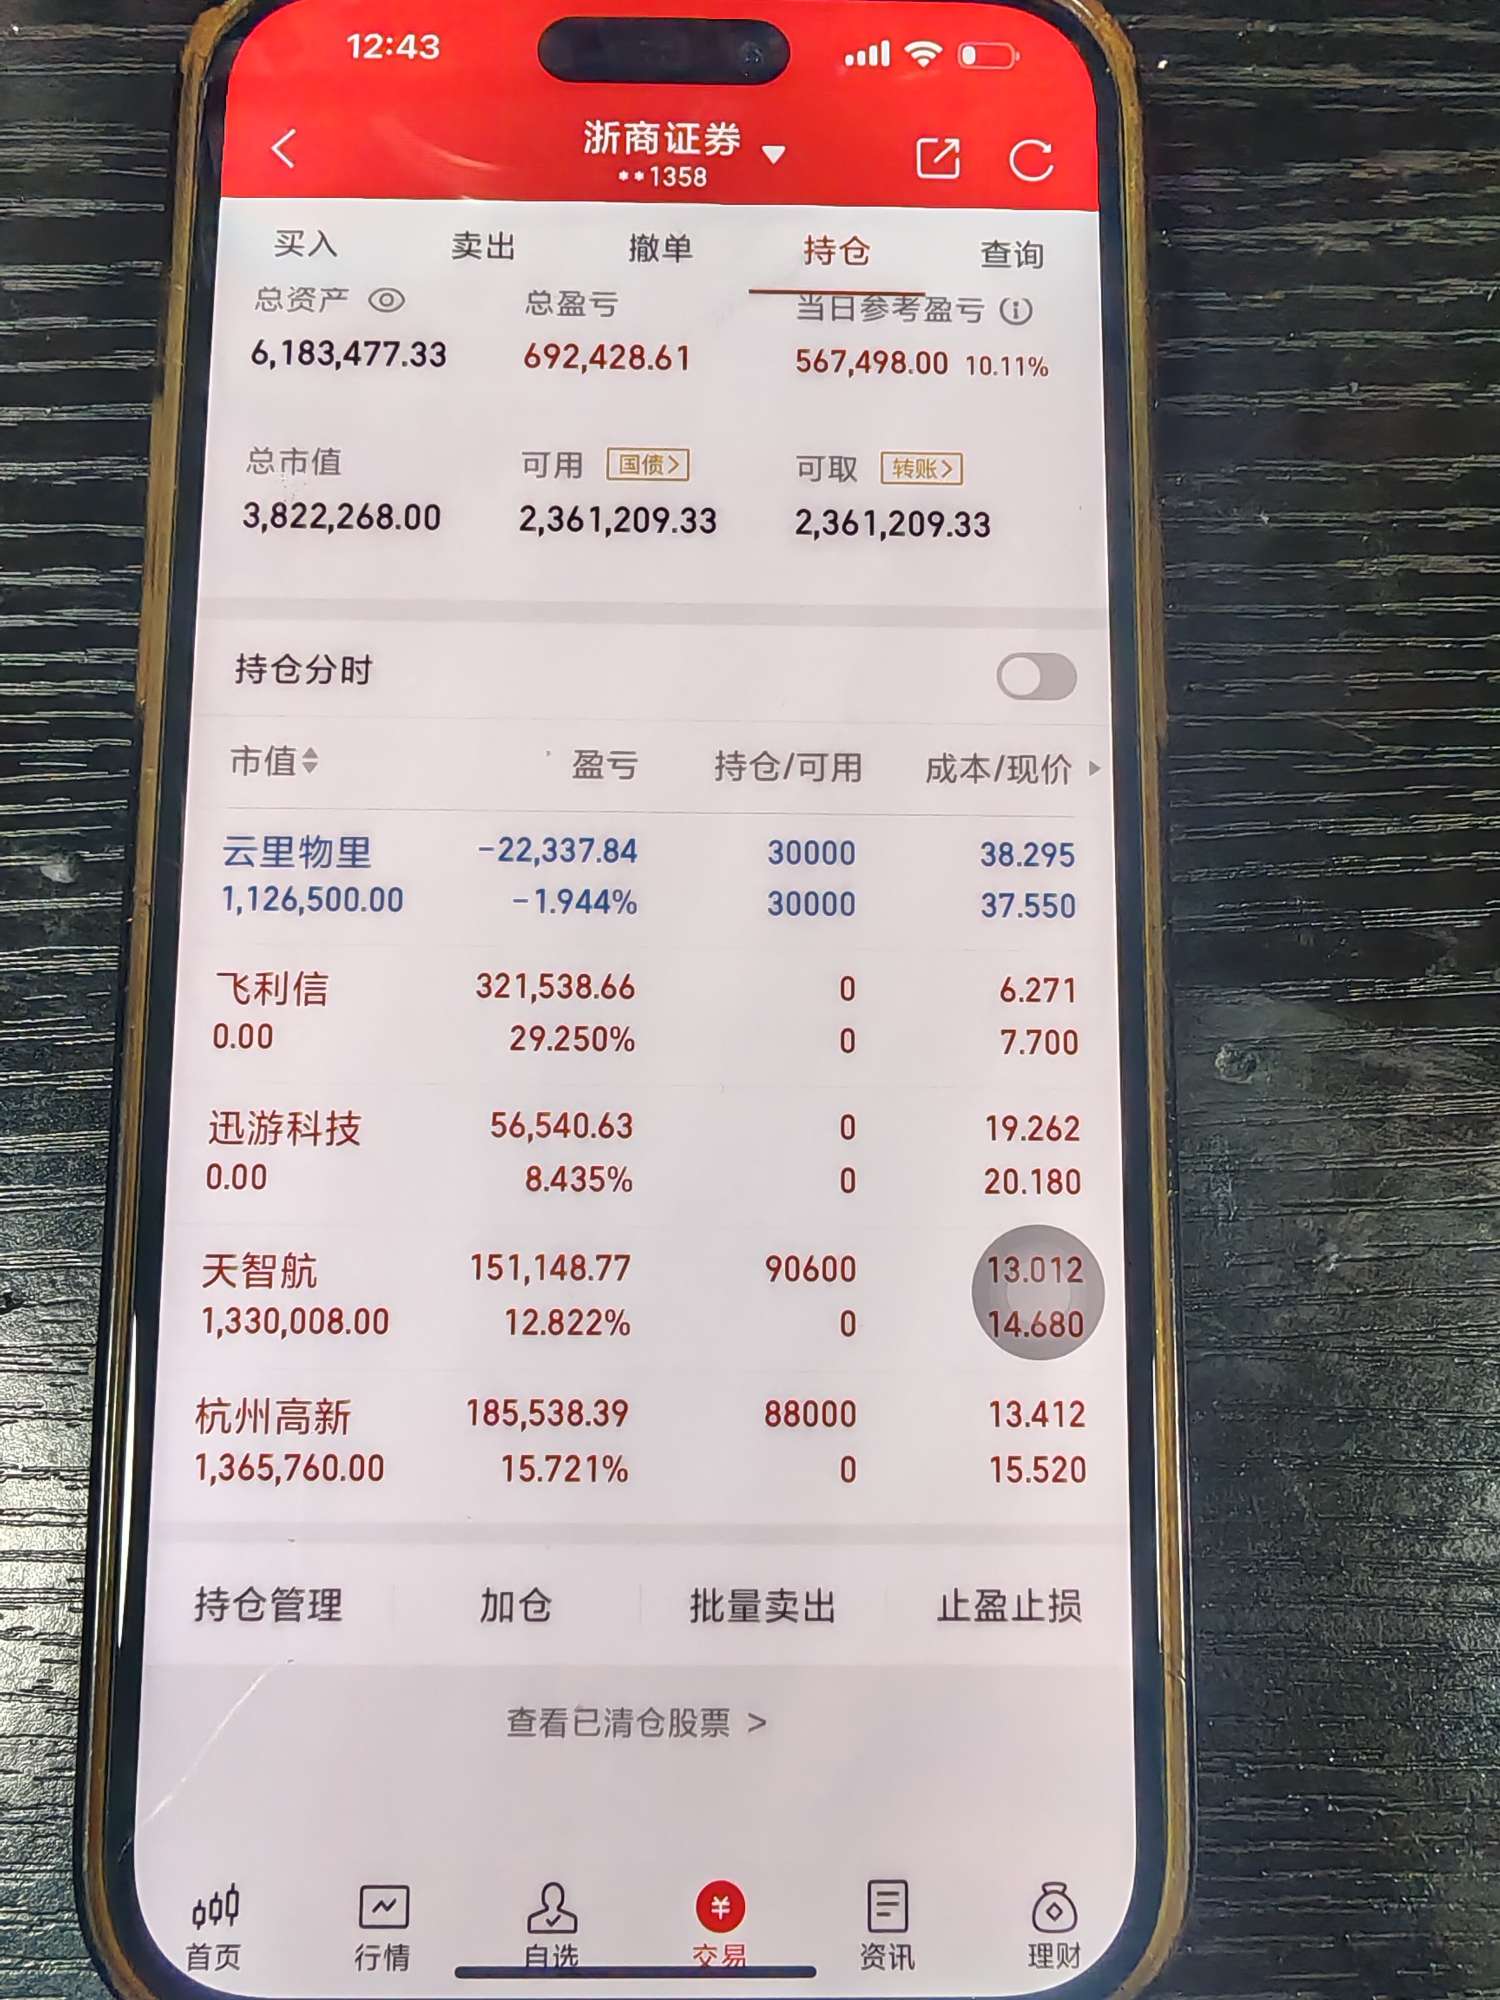 12:43
浙商证券
**1358
买入 卖出 撤单 持仓 查询
总资产 总盈亏 当日参考盈亏
6,183,477.33 692,428.61 567,498.00 10.11%
总市值 可用 国债> 可取 转账>
3,822,268.00 2,361,209.33 2,361,209.33
持仓分时
市值 盈亏 持仓/可用 成本/现价
云里物里 -22,337.84 30000 38.295
1,126,500.00 -1.944% 30000 37.550
飞利信 321,538.66 0 6.271
0.00 29.250% 0 7.700
迅游科技 56,540.63 0 19.262
0.00 8.435% 0 20.180
天智航 151,148.77 90600 13.012
1,330,008.00 12.822% 0 14.680
杭州高新 185,538.39 88000 13.412
1,365,760.00 15.721% 0 15.520
持仓管理 加仓 批量卖出 止盈止损
查看已清仓股票 >
首页 行情 自选 交易 资讯 理财